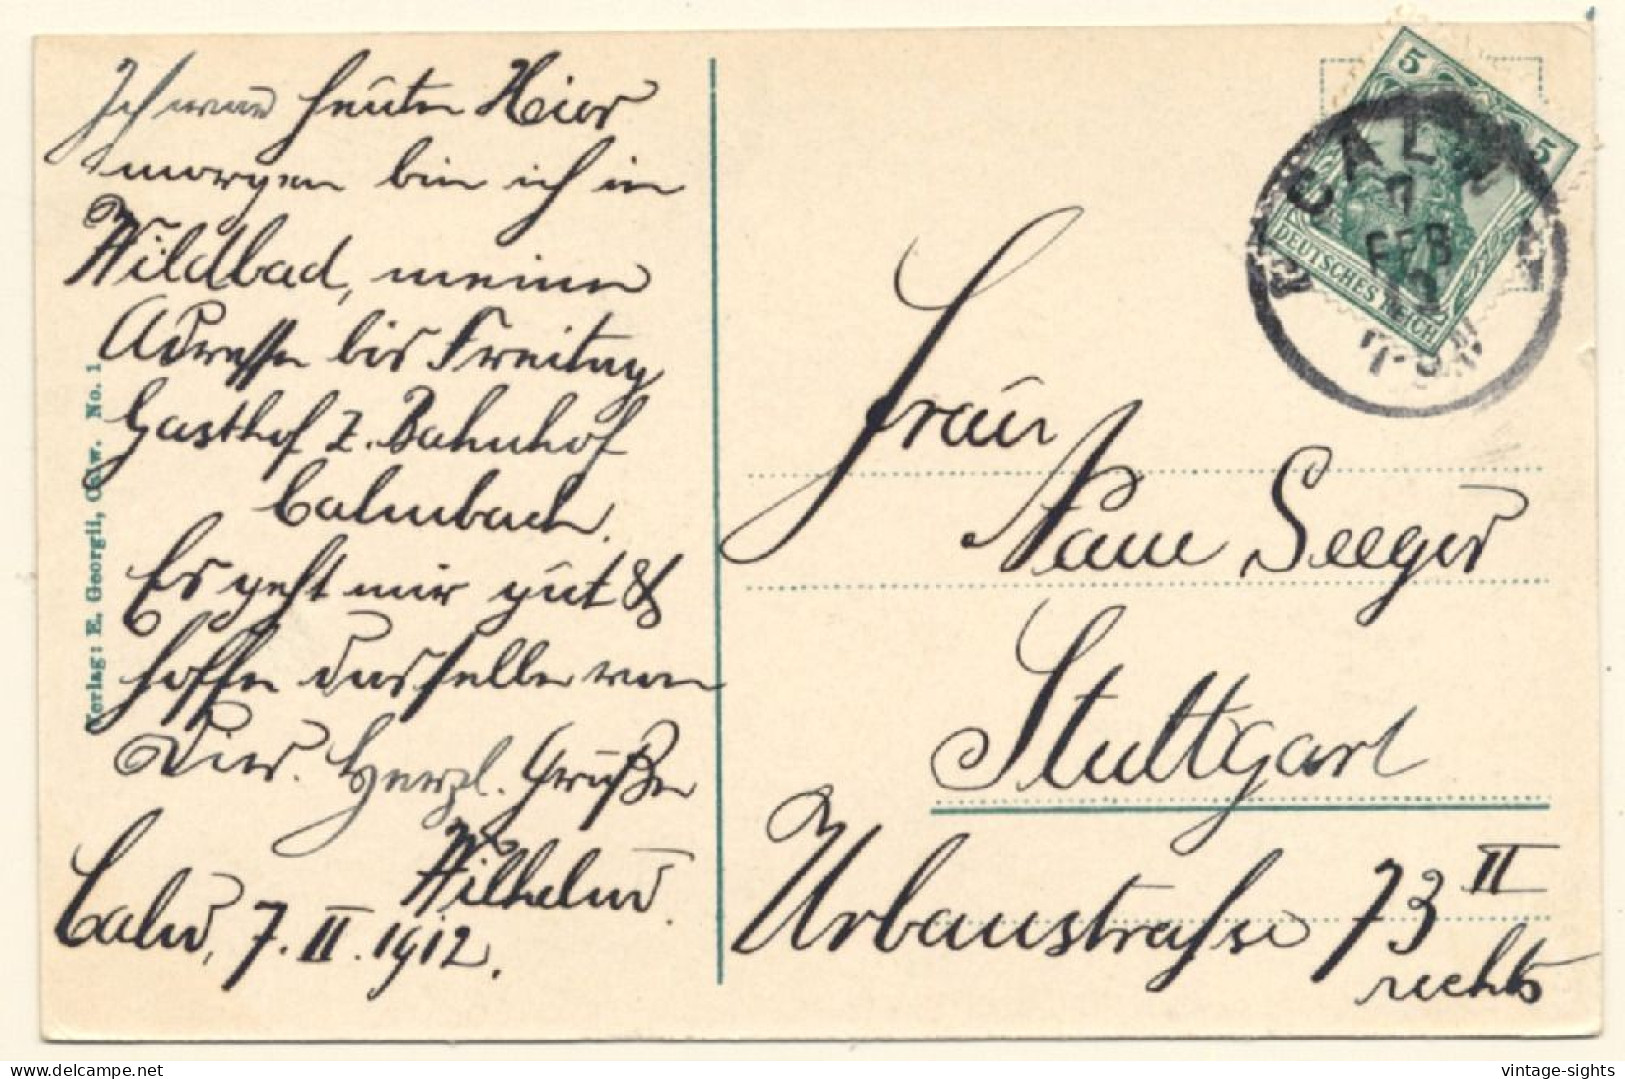 Ich war heute Hier
morgen bin ich in
Wildbad, meine
Adresse bis Freitag
Gasthof z. Bahnhof
Calmbach.
Es geht mir gut &
hoffe dasselbe von
Dir. Herzl. Grüße
Wilhelm.
Calw, 7. II. 1912.
Verlag: E. Georgii, Calw. No. 1
5
5
DEUTSCHES REICH
CALW
7
FEB
12
Frau
Seeger
Stuttgart
Urbanstrasse 73 II
rechts
vintage-sights